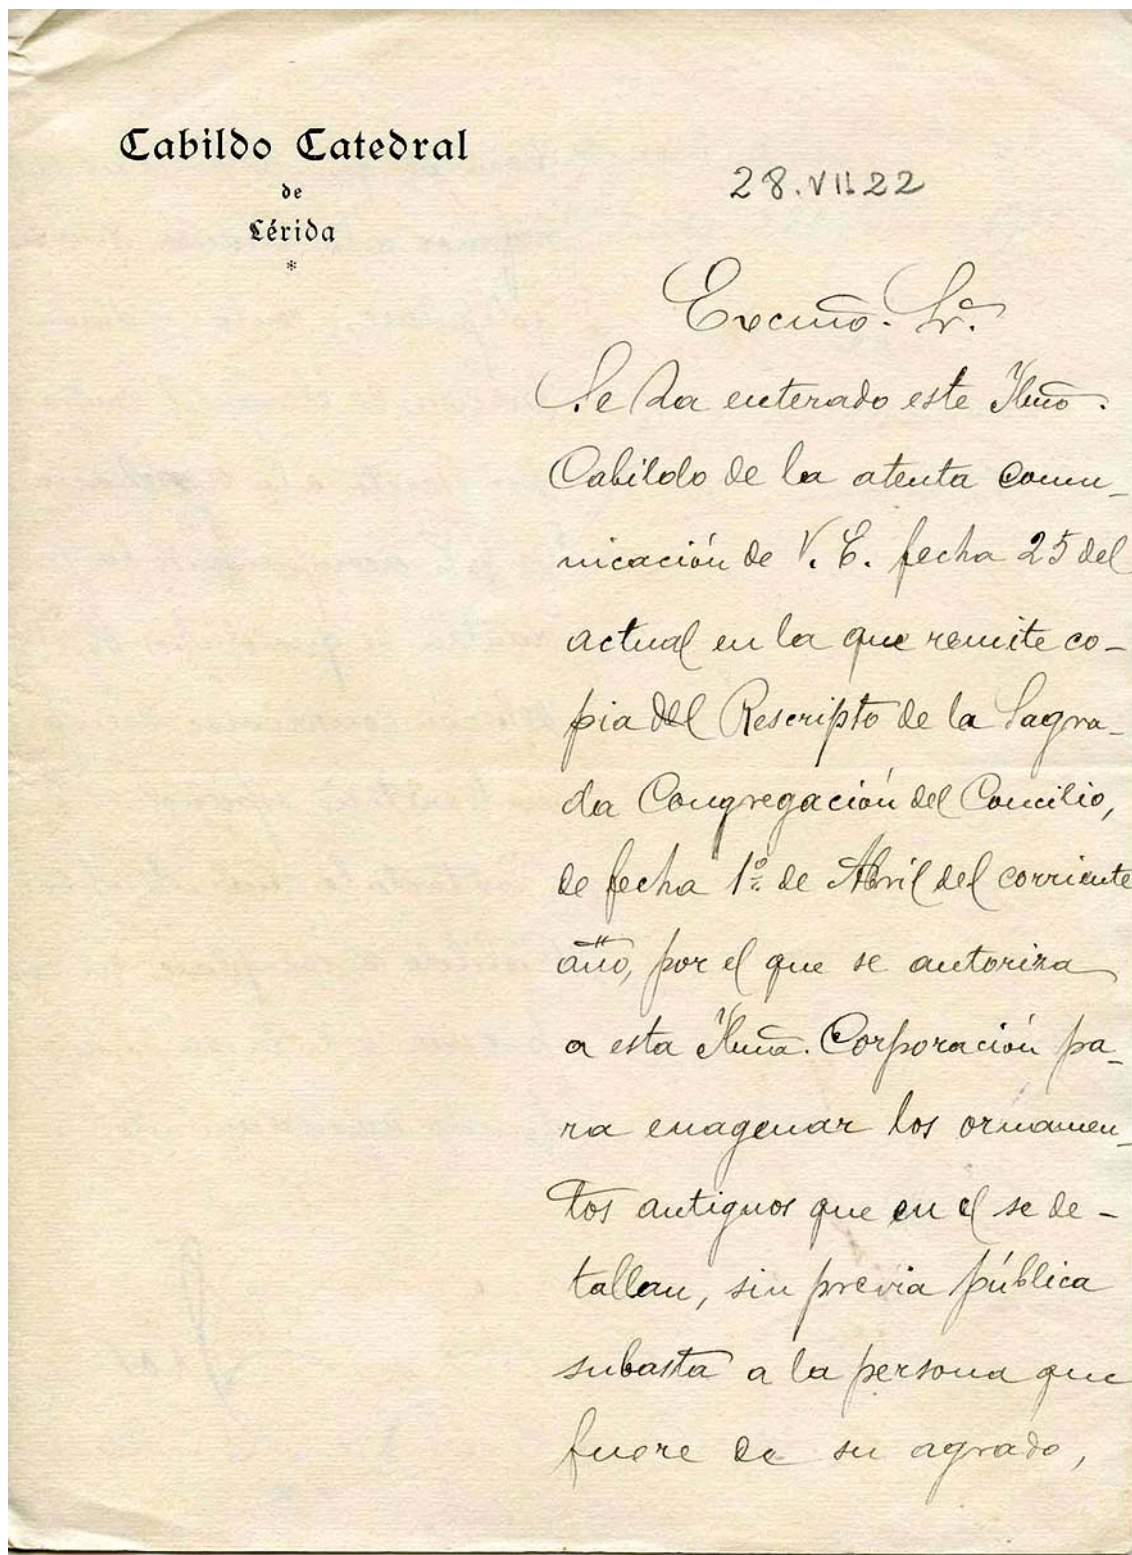 Cabildo Catedral
de
Lérida
*
28.VII.22
Excmo. Sr.
Se ha enterado este Iltmo.
Cabildo de la atenta comu-
nicación de V. E. fecha 25 del
actual en la que remite co-
pia del Rescripto de la Sagra-
da Congregación del Concilio,
de fecha 1º de Abril del corriente
año, por el que se autoriza
a esta Iltma. Corporación pa-
ra enagenar los ornamen-
tos antiguos que en el se de-
tallan, sin previa pública
subasta a la persona que
fuere de su agrado,